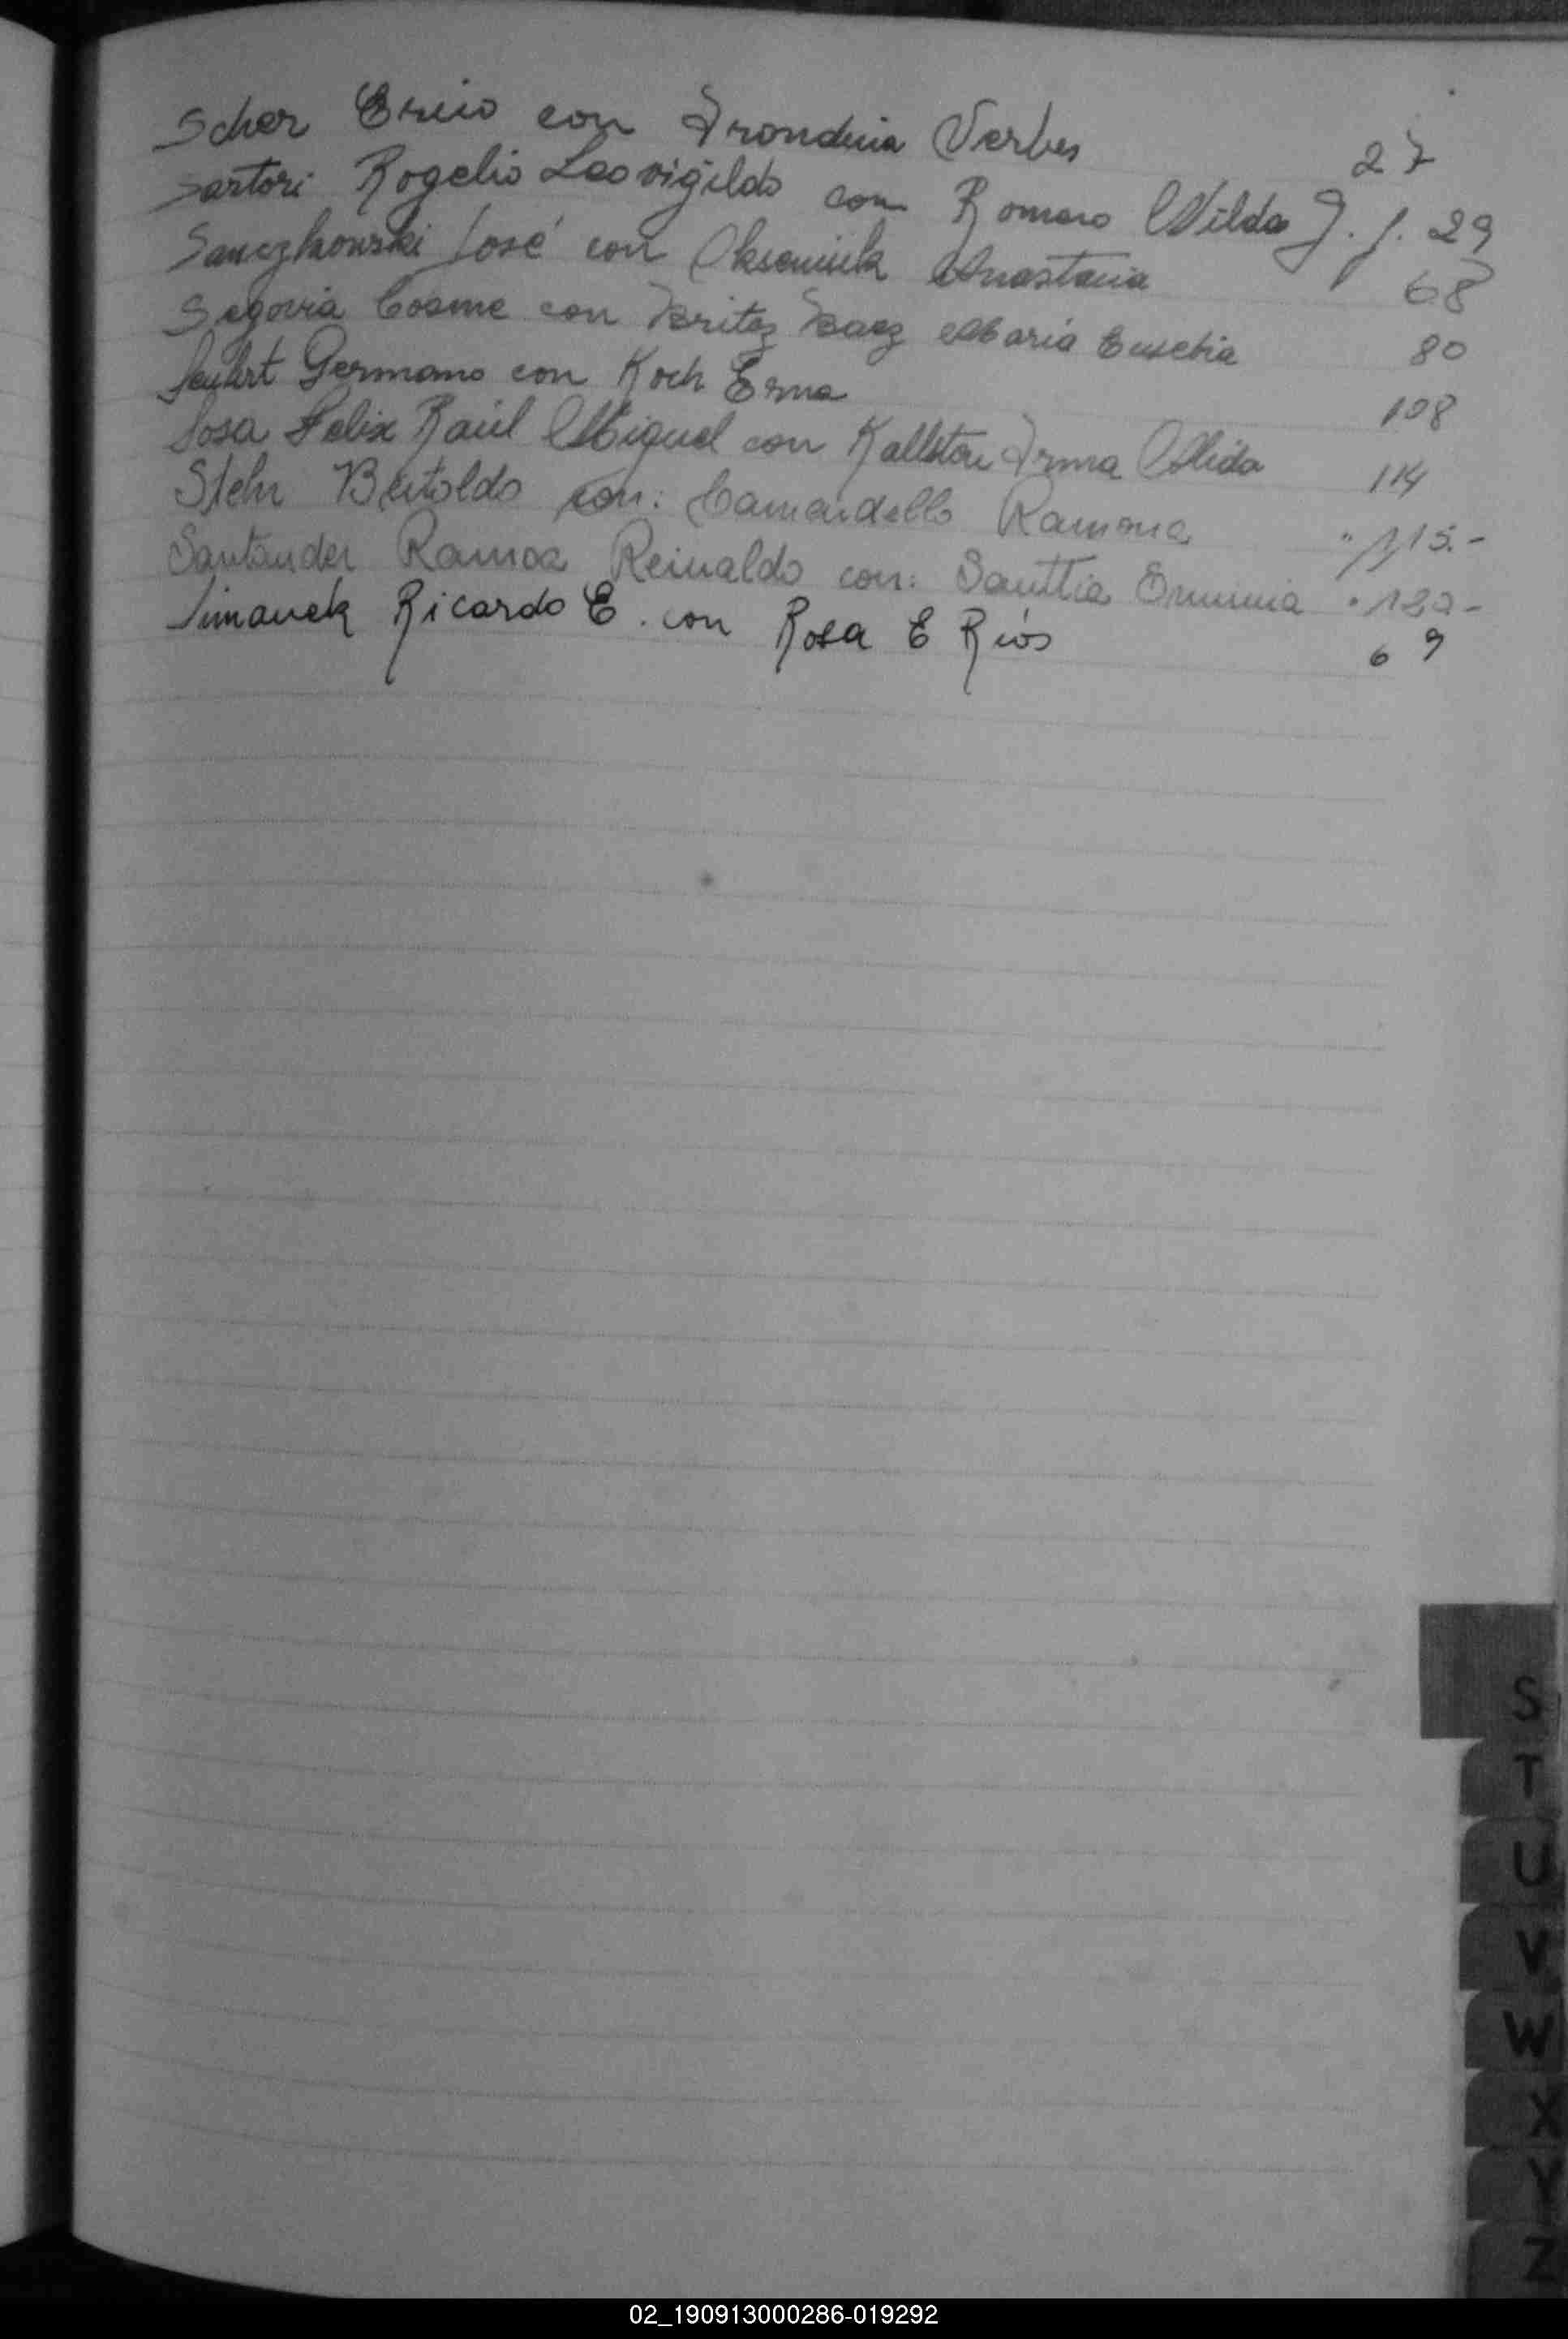 Scher Erico con Frondina Verbes 27
Sartori Rogelio Leovigildo con Romero Nilda J. f. 29
Sanczkowski José con Okseniuk Anastacia 68
Segovia Cosme con Britez Baez Maria Eusebia 80
Seubert Germano con Koch Erna 108
Sosa Felix Raúl Miguel con Kallsten Irma Alida 114
Stehr Bertoldo con: Camandello Ramona " 115.-
Santander Ramoa Reinaldo con: Erminia " 120-
Simanek Ricardo E. con Rosa E Ríos 69
S
T
U
V
W
X
Y
Z
02_190913000286-019292